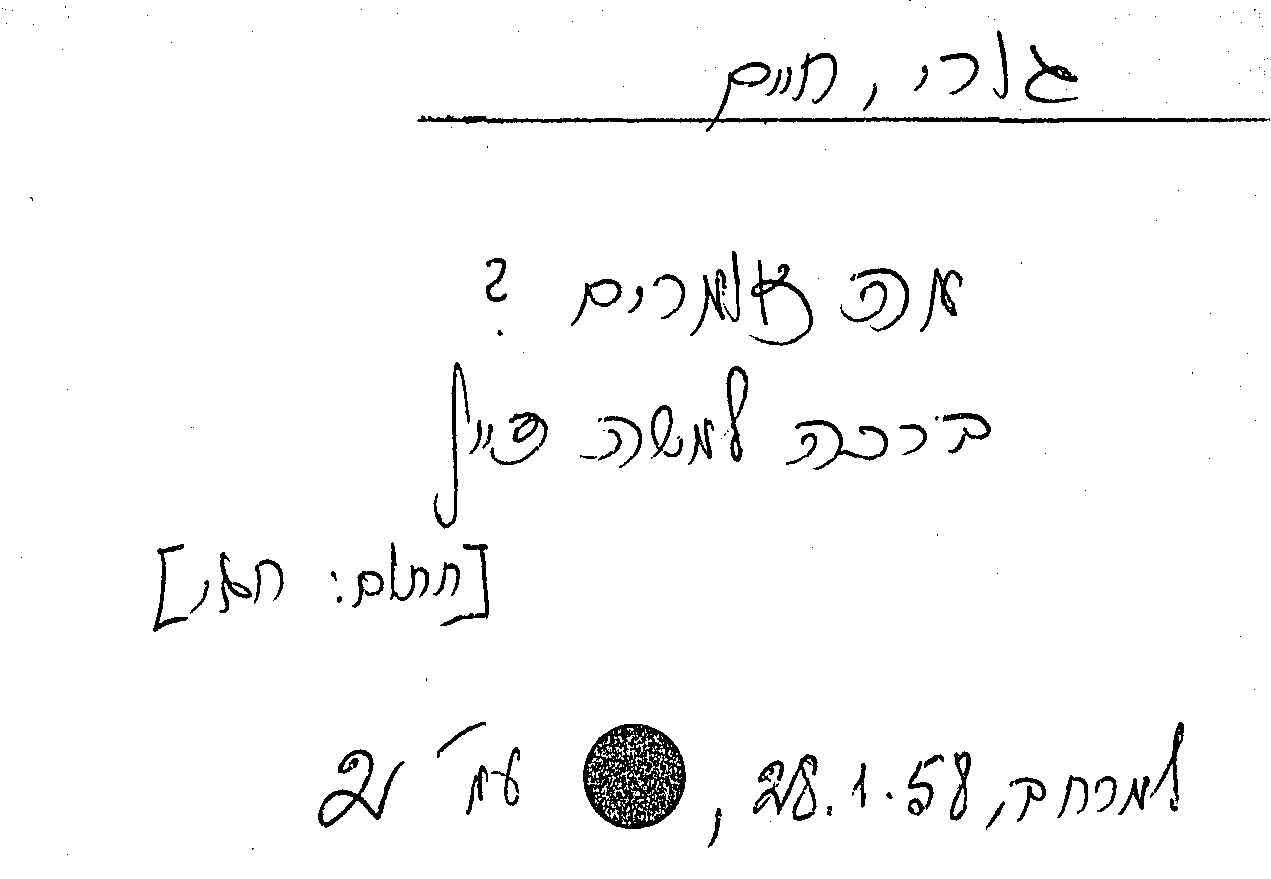 גורי, חיים
מה אומרים ?
ברכה למשה פייל
[חתום: חגי]
למרחב, 28.1.58, עמ' 2